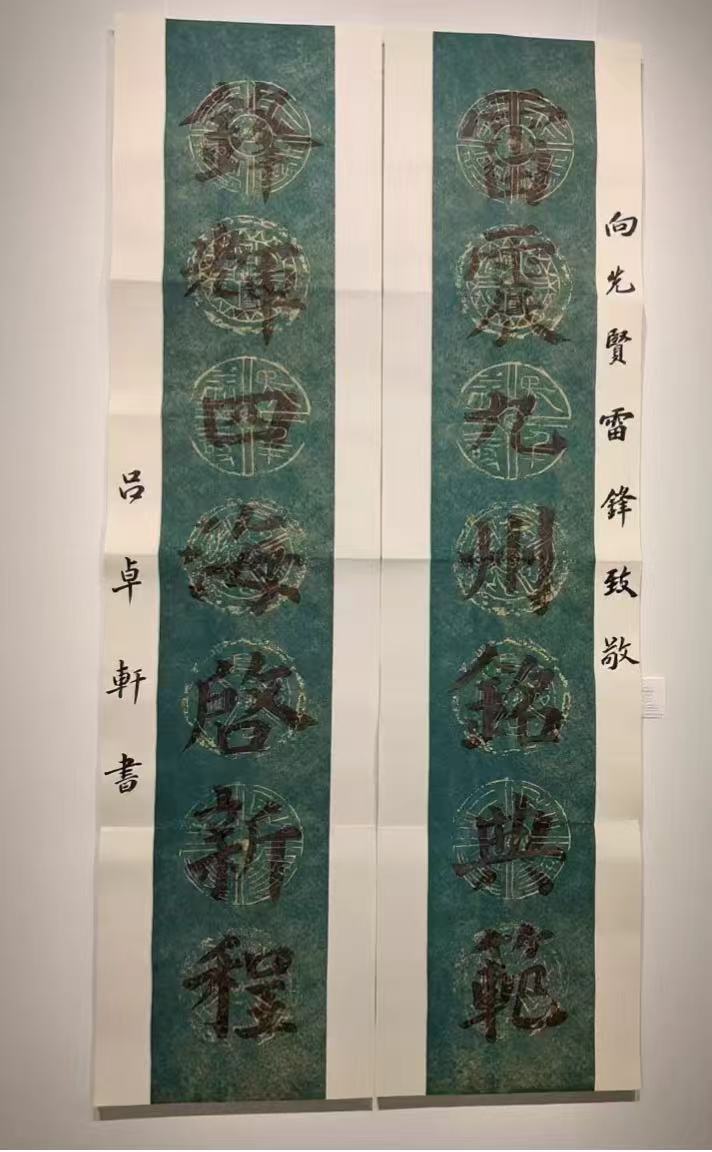 向先賢雷鋒致敬
雷震九州銘典範
鋒輝四海啓新程
吕卓軒書